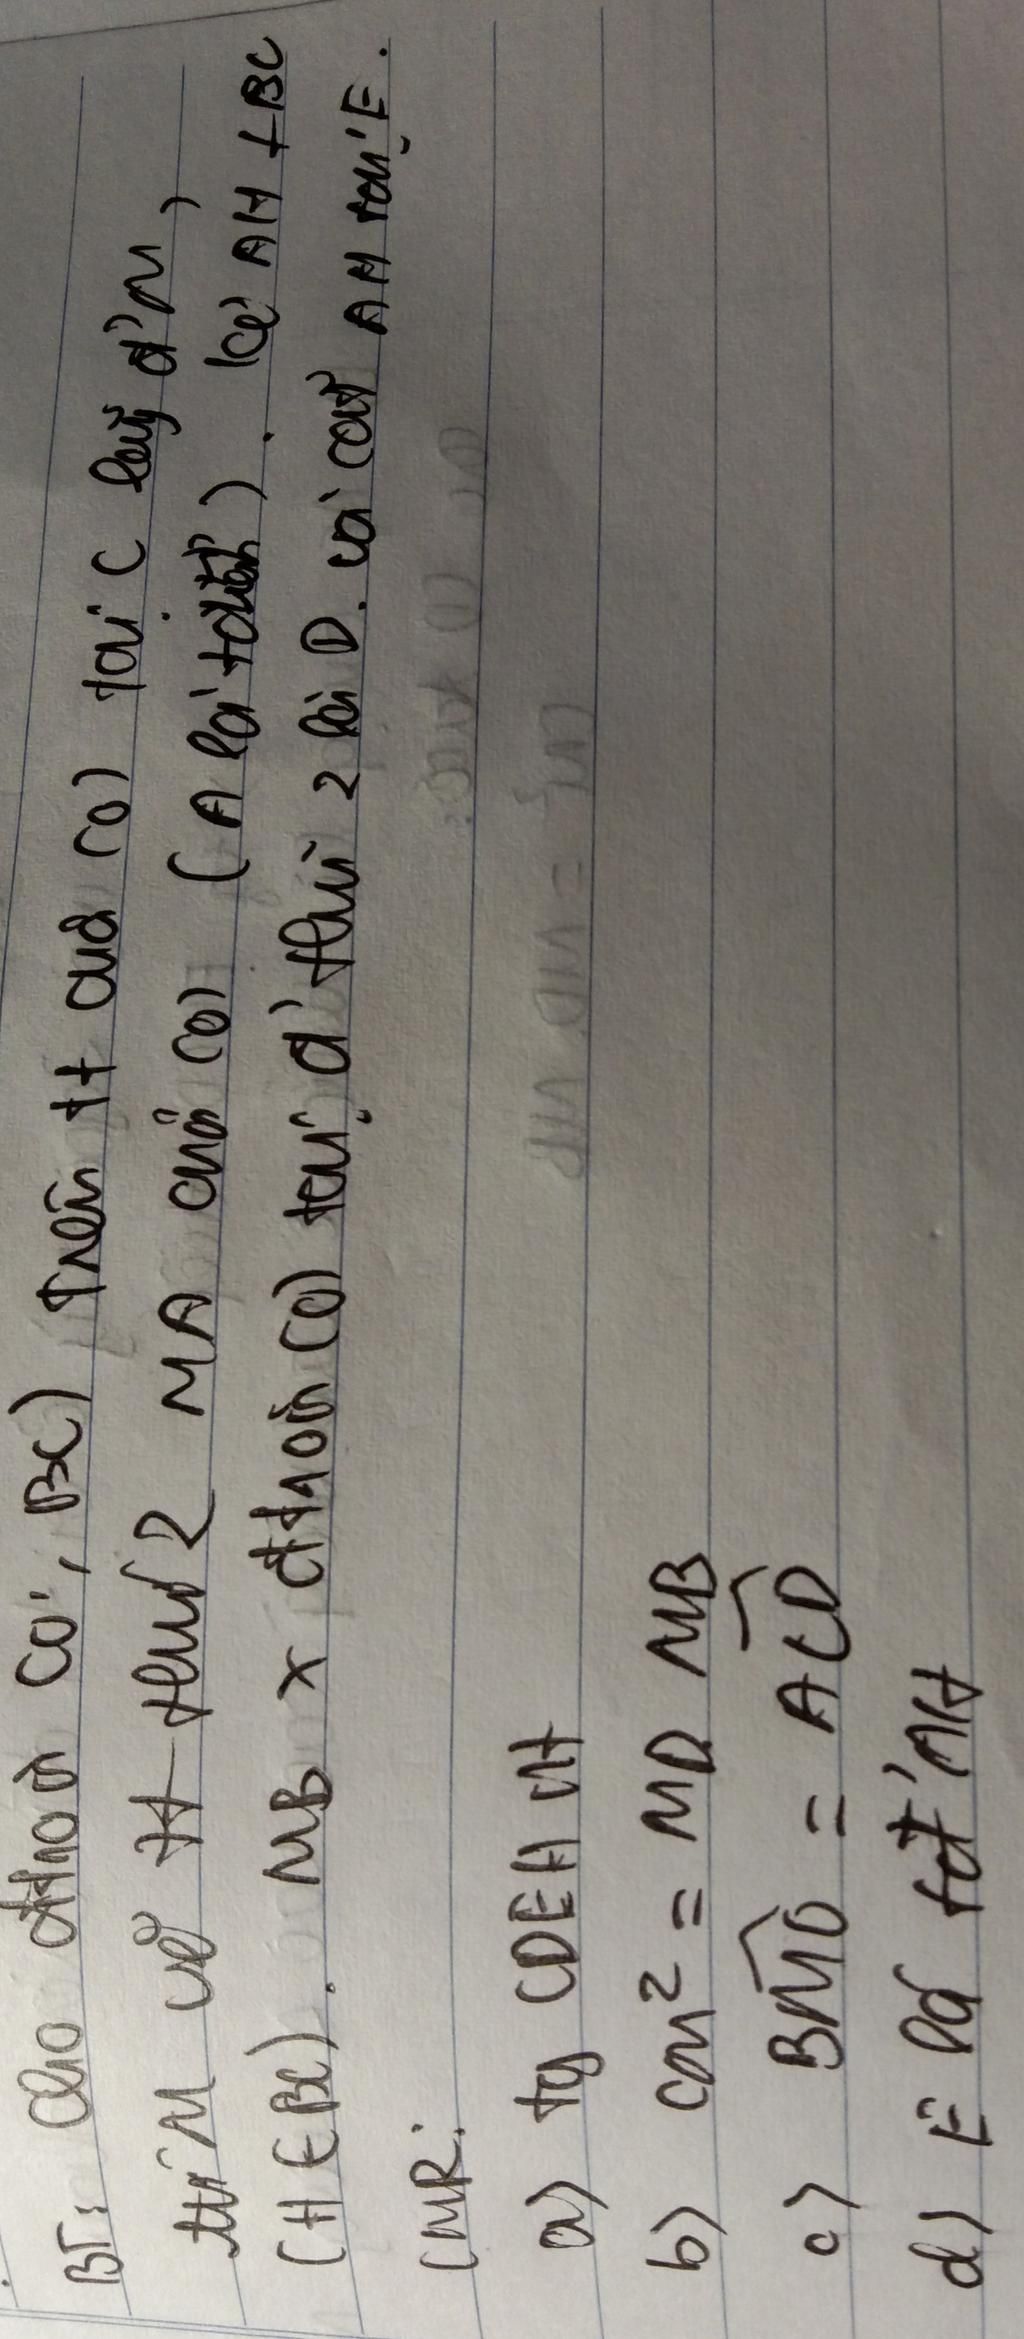 BT: Cho đtròn (O, BC) Trên tt của (O) tại C lấy đ'M,
từ M vẽ tt thứ 2 MA của (O) (A là t'điểm). kẻ AH ⊥ BC
(H ∈ BC). MB x đtròn (O) tại đ' thứ 2 là D. và cắt AH tại E.
CMR:
a) tg CDEH nt
b) CM² = MD MB
c) \widehat{BMO} = \widehat{ACD}
d) E là tđ' AH